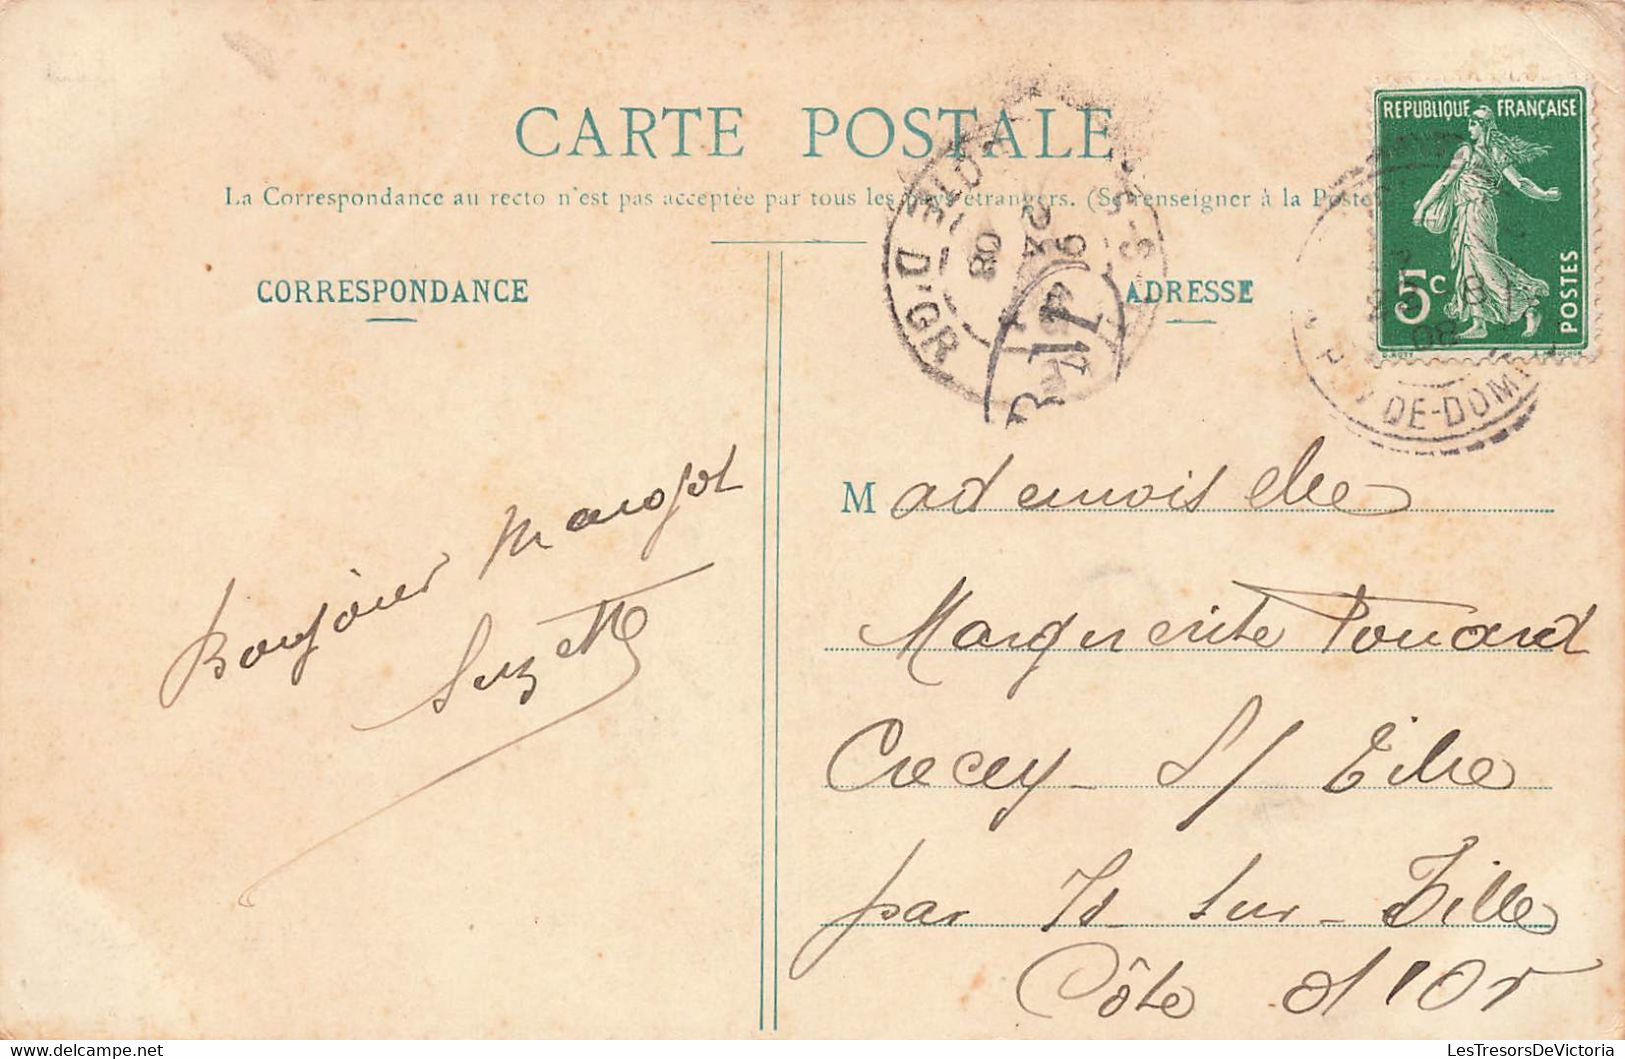 CARTE POSTALE
La Correspondance au recto n'est pas acceptée par tous les pays étrangers. (Se renseigner à la Poste
CORRESPONDANCE
ADRESSE
REPUBLIQUE FRANÇAISE
5c
POSTES
DE-DOM
D'OR
08
Bonjour Margot
Suzette
Mademoiselle
Marguerite
Crecey S/ Tille
par Is sur-Tille
Côte d'Or
LesTresorsDeVictoria